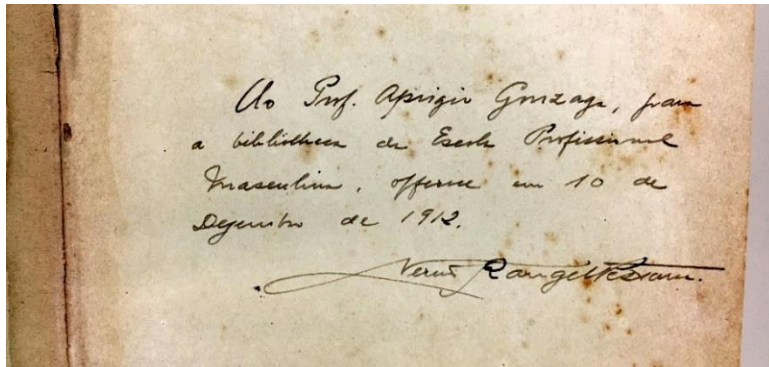 Ao Prof. Aprigio Gonzaga, para
a bibliotheca da Escola Profissional
Masculina, offerece em 10 de
Dezembro de 1912.
Nereu Rangel Pestana.